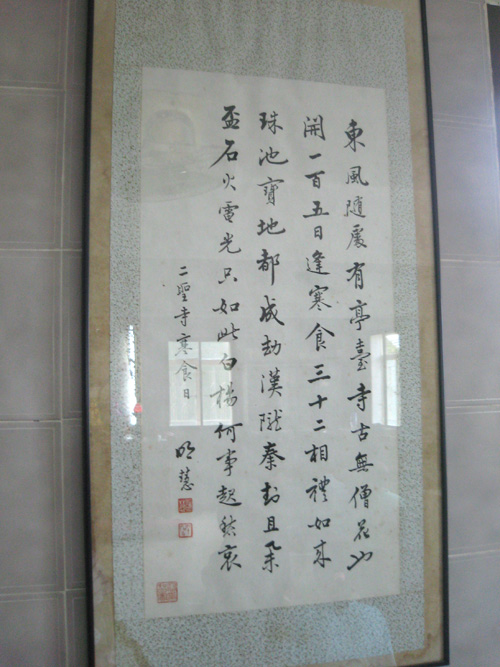 東風隨處有亭臺寺古無僧花
開一百五日逢寒食三十二相禮如來
珠池寶地都成劫漢隴秦封且
盃石火電光只如此白楊何事起愁哀
二聖寺寒食日
明慧